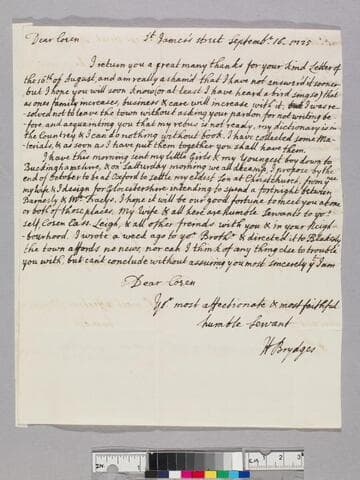 Dear Cosen St James's street Septembr. 16. 1725
I return you a great many thanks for your kind Letter of
the 16th of August, and am really asham'd that I have not answer'd it sooner
but I hope you will soon know (or at least I have heard a bird sing so) that
as ones family increases, business & care will increase with it, but I was re-
solved not to leave the town without asking your pardon for not writing be-
fore and acquainting you that my rebus is not ready, my dictionary is in
the Country & I can do nothing without book. I have collected some Ma-
terials, & as soon as I have put them together you shall have them.
I have this morning send my little Girls & my youngest boy down to
Buckinghamshire, & on Satturday morning we all decamp, I propose by the
end of October to be at Oxford to settle my eldest Son at Christchurch, from yence
my wife & I design for Glocestershire intending to spend a fortnight between
Barnesly & Mr. Tracys. I hope it will be our good fortune to meet you at one
or both of those places. My wife & all here are humble Servants to yor.
self, Cosen Leigh, & all other freinds with you & in your Neigh-
bourhood. I wrote a week ago to yor. Brothr. & directed it to
the town affords no news, nor can I think of any thing else to trouble
you with, but cant conclude without assuring you most sincerely yt. I am
Dear Cosen
Yr. most affectionate & most faithfull
humble Servant
H Brydges
IN
CM
1
2
3